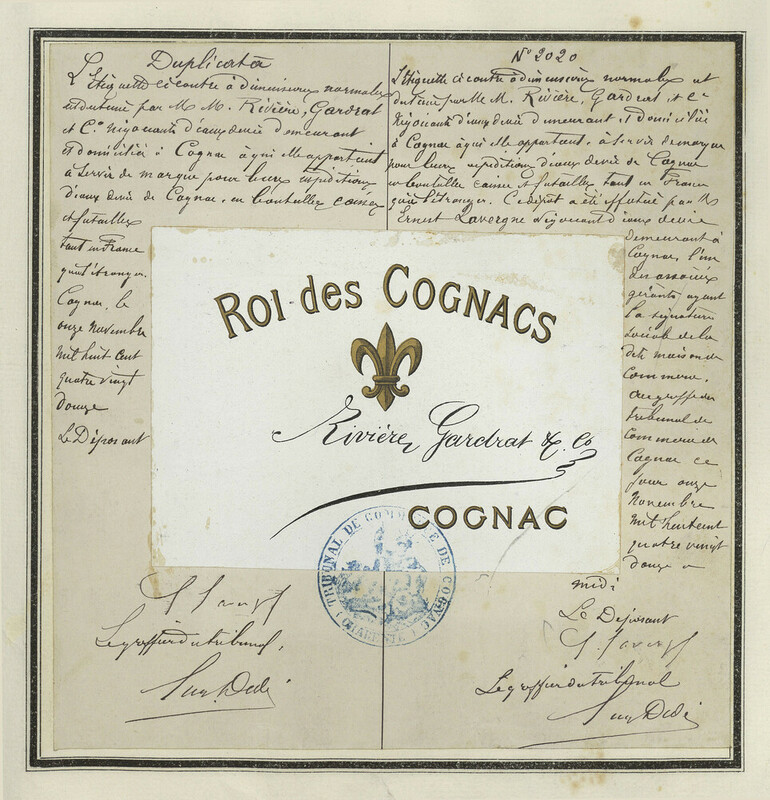 Duplicata
L'étiquette ci contre à dimensions normales
est du tiné par M M. Rivière, Gardrat
et Cº négociants d'eaux de vie demeurant
et domiciliés à Cognac à qui elle appartient
à servir de marque pour leurs expéditions
d'eaux de vie de Cognac, en bouteilles caisses
et futailles
tant en France
qu'à l'étranger.
Cognac, le
onze Novembre
mil huit cent
quatre vingt
douze
Le Déposant
Le greffier du tribunal,
Nº 2020
L'étiquette ci contre à dimensions normales est
par M M. Rivière, Gardrat, et Cie
négociants d'eaux de vie demeurant, et domiciliés
à Cognac à qui elle appartient, à servir de marque
pour leurs expéditions d'eaux de vie de Cognac
en bouteilles caisses et futailles tant en France
qu'à l'étranger. Ce dépôt a été effectué par M
Ernest Lavergne négociant d'eaux de vie
demeurant à
Cognac, l'un
des associés
gérants, ayant
la signature
sociale de la
dite maison de
commerce,
au greffe du
tribunal de
Commerce de
Cognac ce
jour onze
Novembre
mil huit cent
quatre vingt
douze a
midi
Le Déposant
Le greffier du tribunal
ROI des COGNACS
Rivière, Gardrat & Co
COGNAC
TRIBUNAL DE COMMERCE DE COGNAC
(CHARENTE)